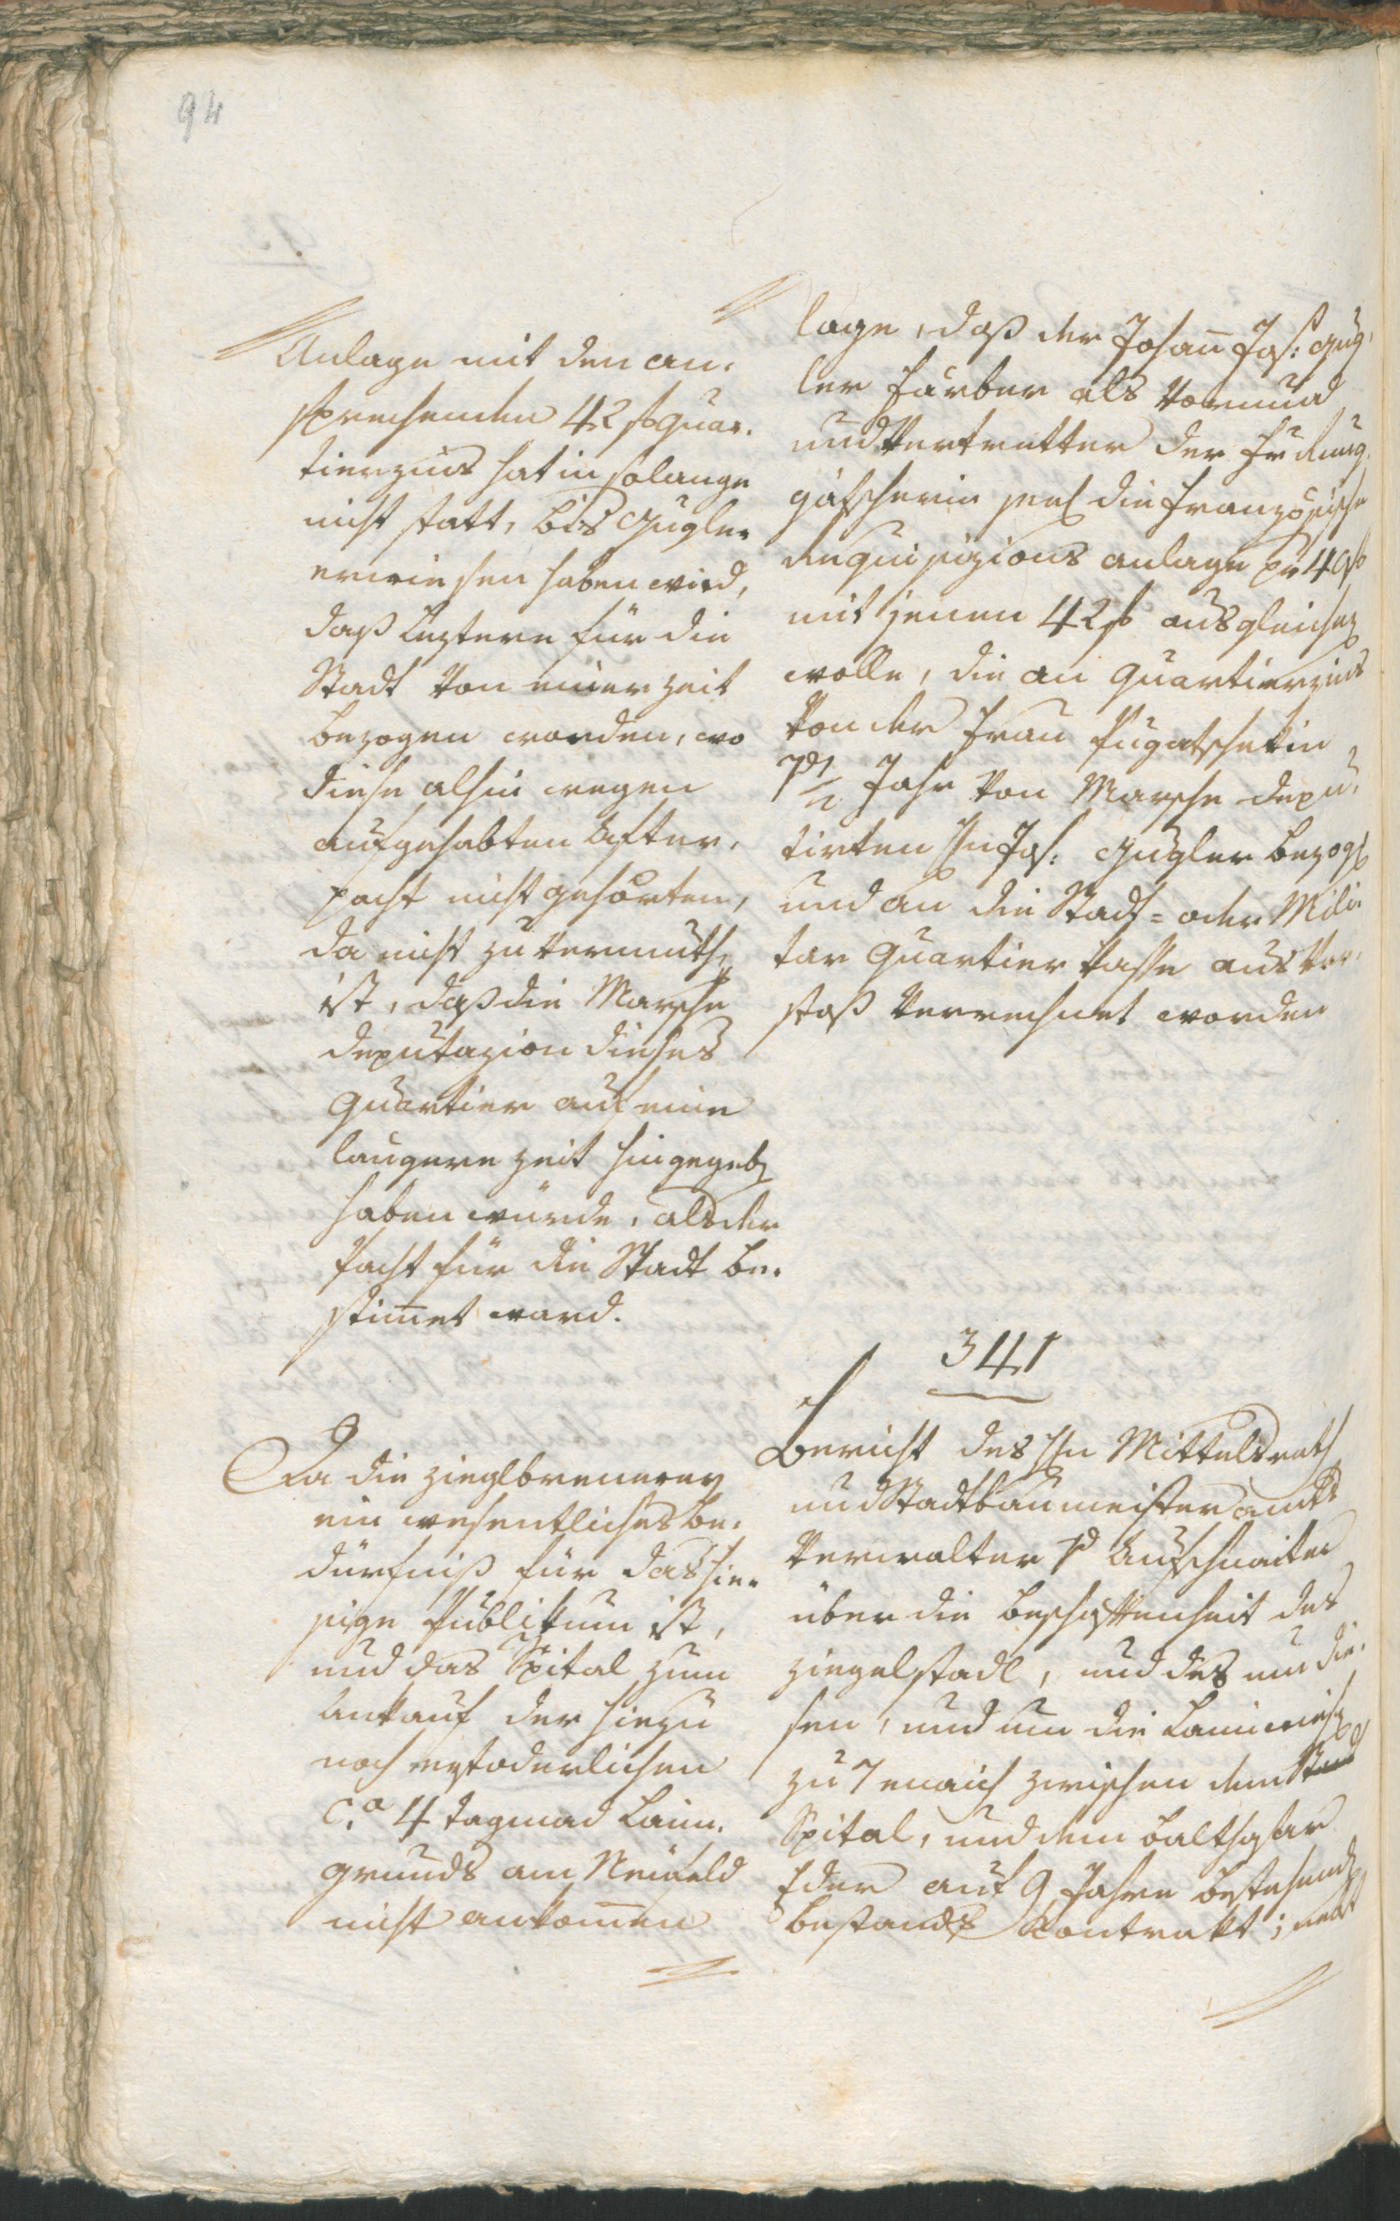 94
Anlage mit den an-
sprechenden 42 f Quar-
tierzins hat in solange
nicht statt, bis Gugler
erwiesen haben wird,
daß leztere für die
Stadt von einer Zeit
bezogen worden, wo
diese alhin wegen
aufgehabten After-
pacht nicht gehörten,
da nicht zu vermuth
ist, daß die Marsche
deputazion dieses
Quartier auf eine
längere Zeit hingegeb
haben würde, als der
Pacht für die Stadt be-
stim̅et ward.
Da die Zieglbrennerey
ein wesentliches Be-
dürfniß für das hie-
sige Publikum ist,
und das Spital zum
Ankauf der hiezu
noch erfoderlichen
Ca 4 Tagmad Laim-
grunds am Neufeld
nicht ankom̅en
lage, daß der Johan̅ Jos: Gug-
ler Färber als Vormund
und Vertretter der
die französische
Requisizions anlage pr 49 f
mit jenen 42 f ausgleichen
wolle, die an Quartierzins
von der Frau Pugatschekin
Jahr von Marsche depu-
tirten Hn Jos: Gugler bezog
und an die Stadt= oder Mili-
tar Quartier Kasse aus Ver-
stoß verrechnet worden
341
Bericht des Hn Mittelsrath
und Stadtbaumeisteramts
Verwalter v Aufschnaiter
über die Beschaffenheit des
Ziegelstadl, und des um die-
sen, und um die Laimwiese
zu Jenaich zwischen dem
Spital, und dem Balthasar
Eder auf 9 Jahre bestehend
Bestands Kontrakt; nebst